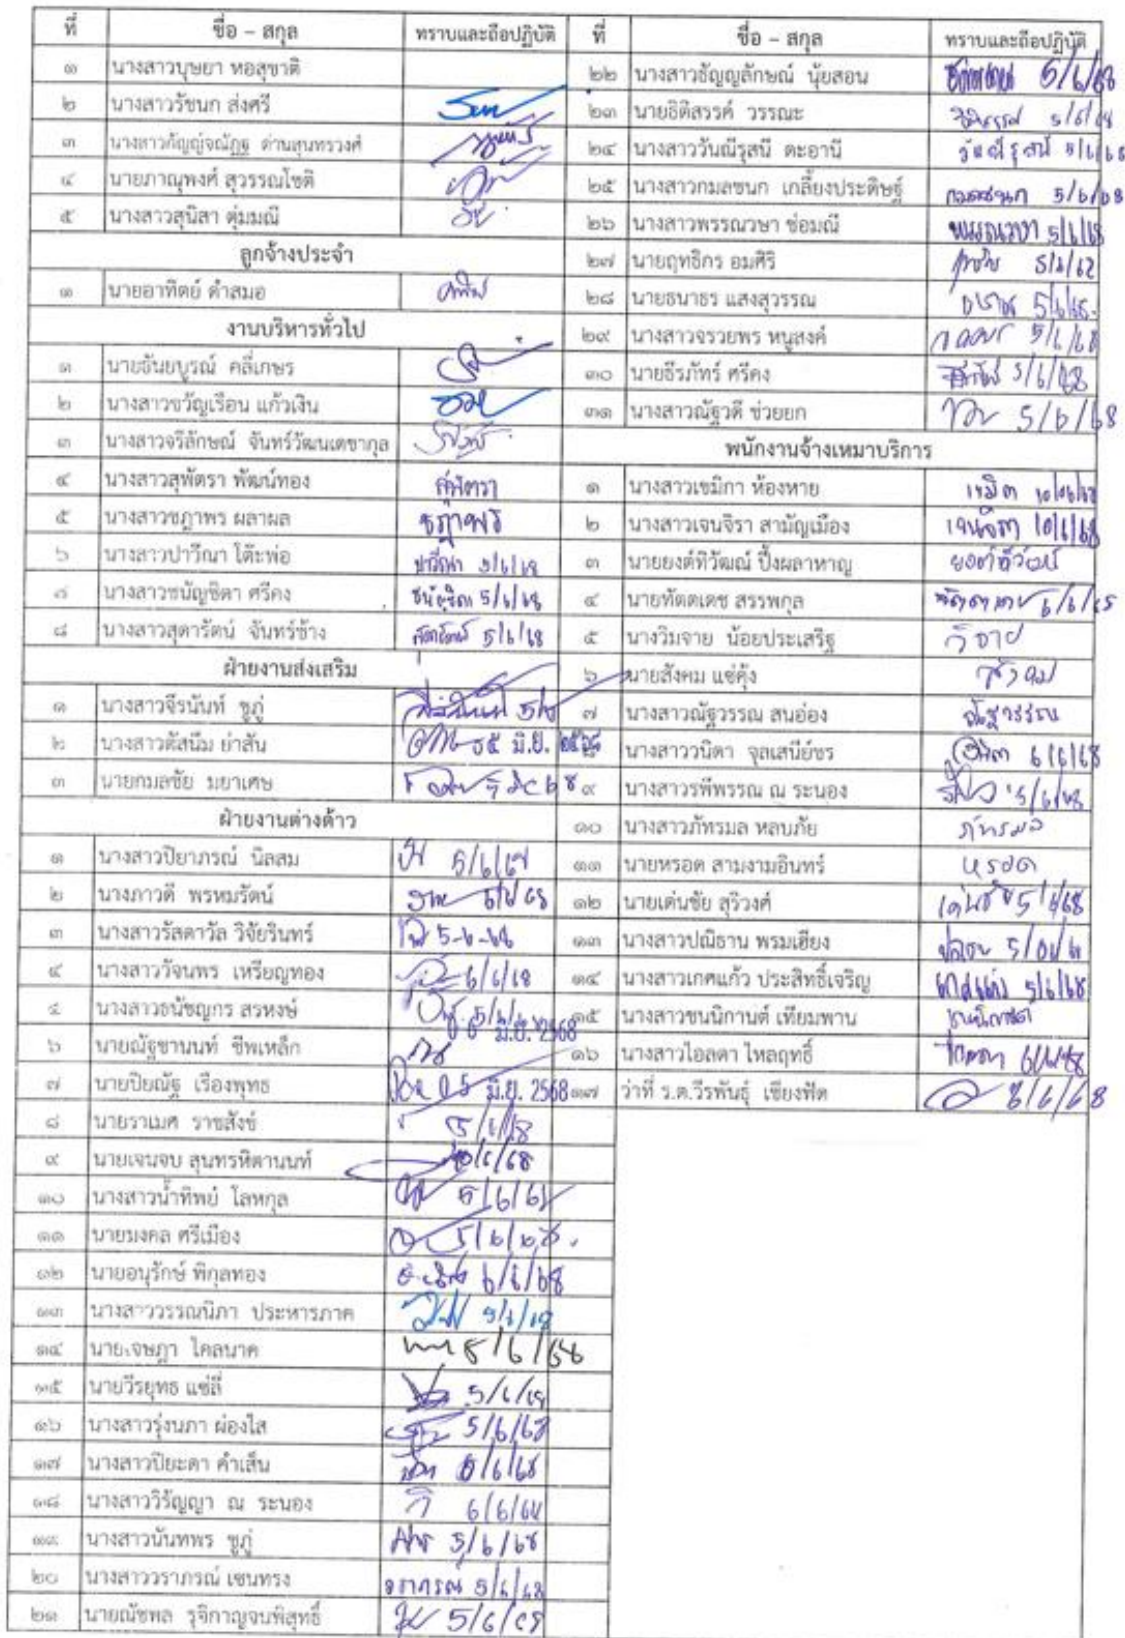 ที่ ชื่อ – สกุล ทราบและถือปฏิบัติ
๑ นางสาวบุษยา หอสุชาติ
๒ นางสาวรัชนก ส่งศรี
๓ นางสาวกัญญ์จณัฏฐ ด่านสุนทรวงศ์
๔ นายภาณุพงศ์ สุวรรณโชติ
๕ นางสาวสุนิสา ตุ่มมณี
ลูกจ้างประจำ
๑ นายอาทิตย์ ดำสมอ
งานบริหารทั่วไป
๑ นายธันยบูรณ์ คลี่เกษร
๒ นางสาวขวัญเรือน แก้วเงิน
๓ นางสาวจรีลักษณ์ จันทร์วัฒนเดชากุล
๔ นางสาวสุพัตรา พัฒน์ทอง สุพัตรา
๕ นางสาวชฎาพร ผลาผล ชฎาพร
๖ นางสาวปาวีณา โต๊ะพ่อ ปาวีณา 5/6/68
๗ นางสาวชนัญชิดา ศรีคง ชนัญชิดา 5/6/68
๘ นางสาวสุดารัตน์ จันทร์ช้าง สุดารัตน์ 5/6/68
ฝ่ายงานส่งเสริม
๑ นางสาวจีรนันท์ ชูภู่
๒ นางสาวตัสนีม ย่าสัน ๐๕ มิ.ย. ๒๕๖๘
๓ นายกมลชัย มยาเศษ
ฝ่ายงานต่างด้าว
๑ นางสาวปิยาภรณ์ นิลสม 5/6/68
๒ นางภาวดี พรหมรัตน์ 5/6/68
๓ นางสาวรัสดาวัล วิจัยรินทร์ 5-6-68
๔ นางสาววัจนพร เหรียญทอง 6/6/68
๕ นางสาวธนัชญกร สรหงษ์
๖ นายณัฐชานนท์ ชีพเหล็ก มิ.ย. 2568
๗ นายปิยณัฐ เรืองพุทธ 05 มิ.ย. 2568
๘ นายราเมศ ราชสังข์ 5/6/68
๙ นายเจนจบ สุนทรหิตานนท์
๑๐ นางสาวน้ำทิพย์ โลหกุล 5/6/68
๑๑ นายมงคล ศรีเมือง 5/6/68
๑๒ นายอนุรักษ์ พิกุลทอง 6/6/68
๑๓ นางสาววรรณนิภา ประหารภาค 5/6/68
๑๔ นายเจษฎา ไคลนาค
๑๕ นายวีรยุทธ แซ่ลี่ 5/6/68
๑๖ นางสาวรุ่งนภา ผ่องใส 5/6/68
๑๗ นางสาวปิยะดา คำเส็น
๑๘ นางสาววิรัญญา ณ ระนอง 6/6/68
๑๙ นางสาวนันทพร ชูภู่ 5/6/68
๒๐ นางสาววราภรณ์ เซนทรง วราภรณ์ 5/6/68
๒๑ นายณัชพล รุจิกาญจนพิสุทธิ์ 5/6/68
ที่ ชื่อ – สกุล ทราบและถือปฏิบัติ
๒๒ นางสาวธัญญลักษณ์ นุ้ยสอน 5/6/68
๒๓ นายธิติสรรค์ วรรณะ 5/6/68
๒๔ นางสาววันณีรุสนี ตะอานี 5/6/68
๒๕ นางสาวกมลชนก เกลี้ยงประดิษฐ์ กมลชนก 5/6/68
๒๖ นางสาวพรรณวษา ช่อมณี พรรณวษา 5/6/68
๒๗ นายฤทธิกร อมศิริ
๒๘ นายธนาธร แสงสุวรรณ 5/6/68
๒๙ นางสาวจรวยพร หนูสงค์ 5/6/68
๓๐ นายธีรภัทร์ ศรีคง 5/6/68
๓๑ นางสาวณัฐวดี ช่วยยก 5/6/68
พนักงานจ้างเหมาบริการ
๑ นางสาวเขมิกา ห้องหาย 10/06/68
๒ นางสาวเจนจิรา สามัญเมือง เจนจิรา 10/6/68
๓ นายยงค์ทิวัฒณ์ ปิ้งผลาหาญ
๔ นายทัตตเดช สรรพกุล
๕ นางวิมจาย น้อยประเสริฐ
๖ นายสังคม แซ่คุ้ง สังคม
๗ นางสาวณัฐวรรณ สนอ่อง ณัฐวรรณ
๘ นางสาววนิดา จุลเสนีย์ชร วนิดา 6/6/68
๙ นางสาวรพีพรรณ ณ ระนอง 5/6/68
๑๐ นางสาวภัทรมล หลบภัย ภัทรมล
๑๑ นายหรอด สามงามอินทร์ หรอด
๑๒ นายเด่นชัย สุริวงศ์ เด่นชัย 5/6/68
๑๓ นางสาวปณิธาน พรมเฮียง
๑๔ นางสาวเกศแก้ว ประสิทธิ์เจริญ เกศแก้ว 5/6/68
๑๕ นางสาวชนนิกานต์ เทียมพาน ชนนิกานต์
๑๖ นางสาวไอลดา ไหลฤทธิ์ ไอลดา 6/6/68
๑๗ ว่าที่ ร.ต.วีรพันธุ์ เชียงฟัด